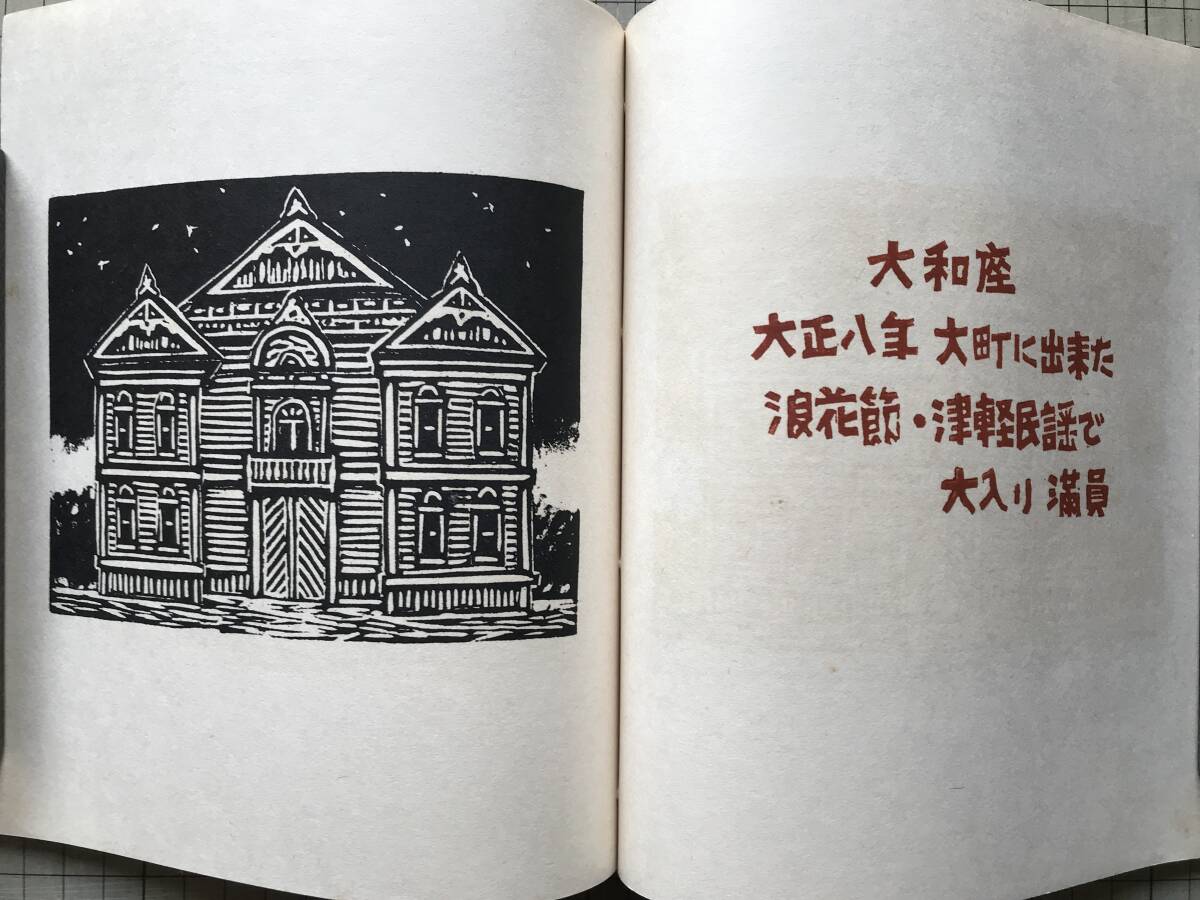 大和座
大正八年 大町に出来た
浪花節・津軽民謡で
大入り 満員